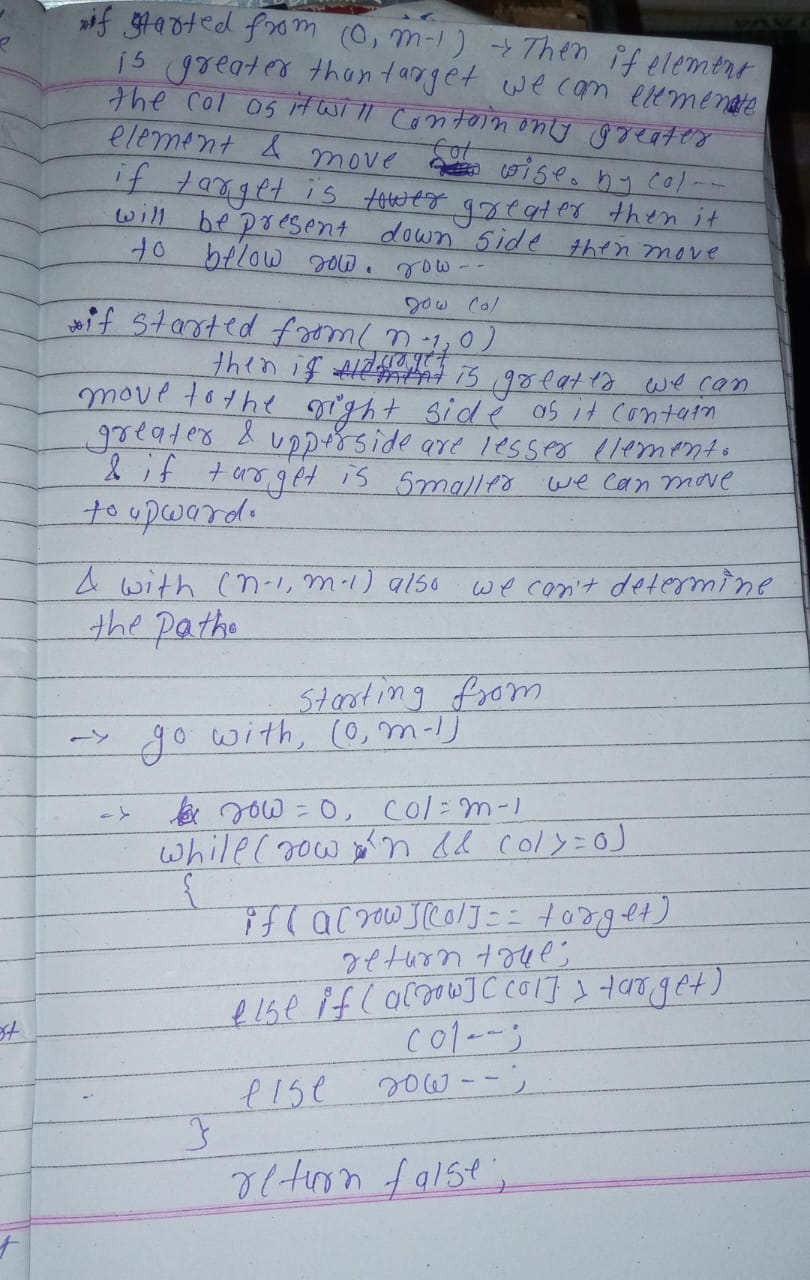 if started from (0, m-1) → Then if element
is greater than target we can elemenate
the col as it will contain only greater
element & move col wise. by col--
if target is lower greater then it
will be present down side then move
to below row. row--
row col
if started from (n-1, 0)
then if element target is greater we can
move to the right side as it contain
greater & upperside are lesser element.
& if target is smaller we can move
to upward.
& with (n-1, m-1) also we can't determine
the path.
starting from
→ go with, (0, m-1)
→ row = 0, col = m-1
while(row < n && col >= 0)
{
if( a[row][col] == target)
return true;
else if( a[row][col] > target)
col--;
else row--;
}
return false;